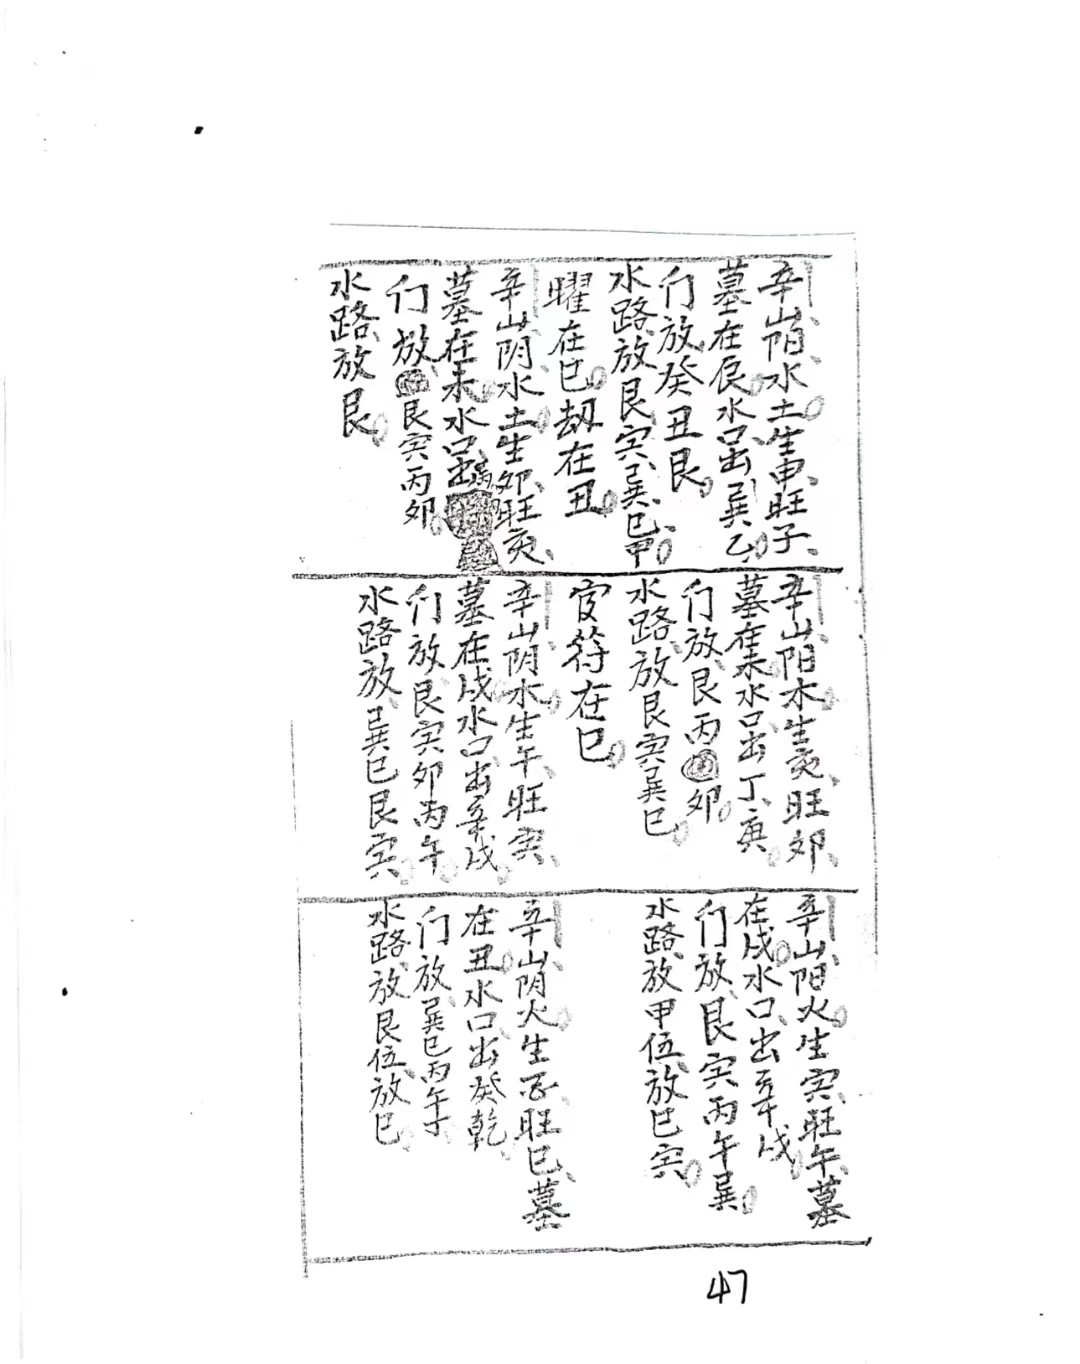 辛山阳水土生申旺子
墓在辰水口出巽乙
门放癸丑艮
水路放艮寅巽巳甲
曜在巳劫在丑
辛山阴水土生卯旺亥
墓在未水口出
门放艮寅丙卯
水路放艮
辛山阳木生亥旺卯
墓在未水口出丁庚
门放艮丙卯
水路放艮寅巽巳
官符在巳
辛山阴木生午旺寅
墓在戌水口出辛戌
门放艮寅卯丙午
水路放巽巳艮寅
辛山阳火生寅旺午墓
在戌水口出辛戌
门放艮寅丙午巽
水路放甲伍放巳寅
辛山阴火生酉旺巳墓
在丑水口出癸乾
门放巽巳丙午丁
水路放艮伍放巳
47